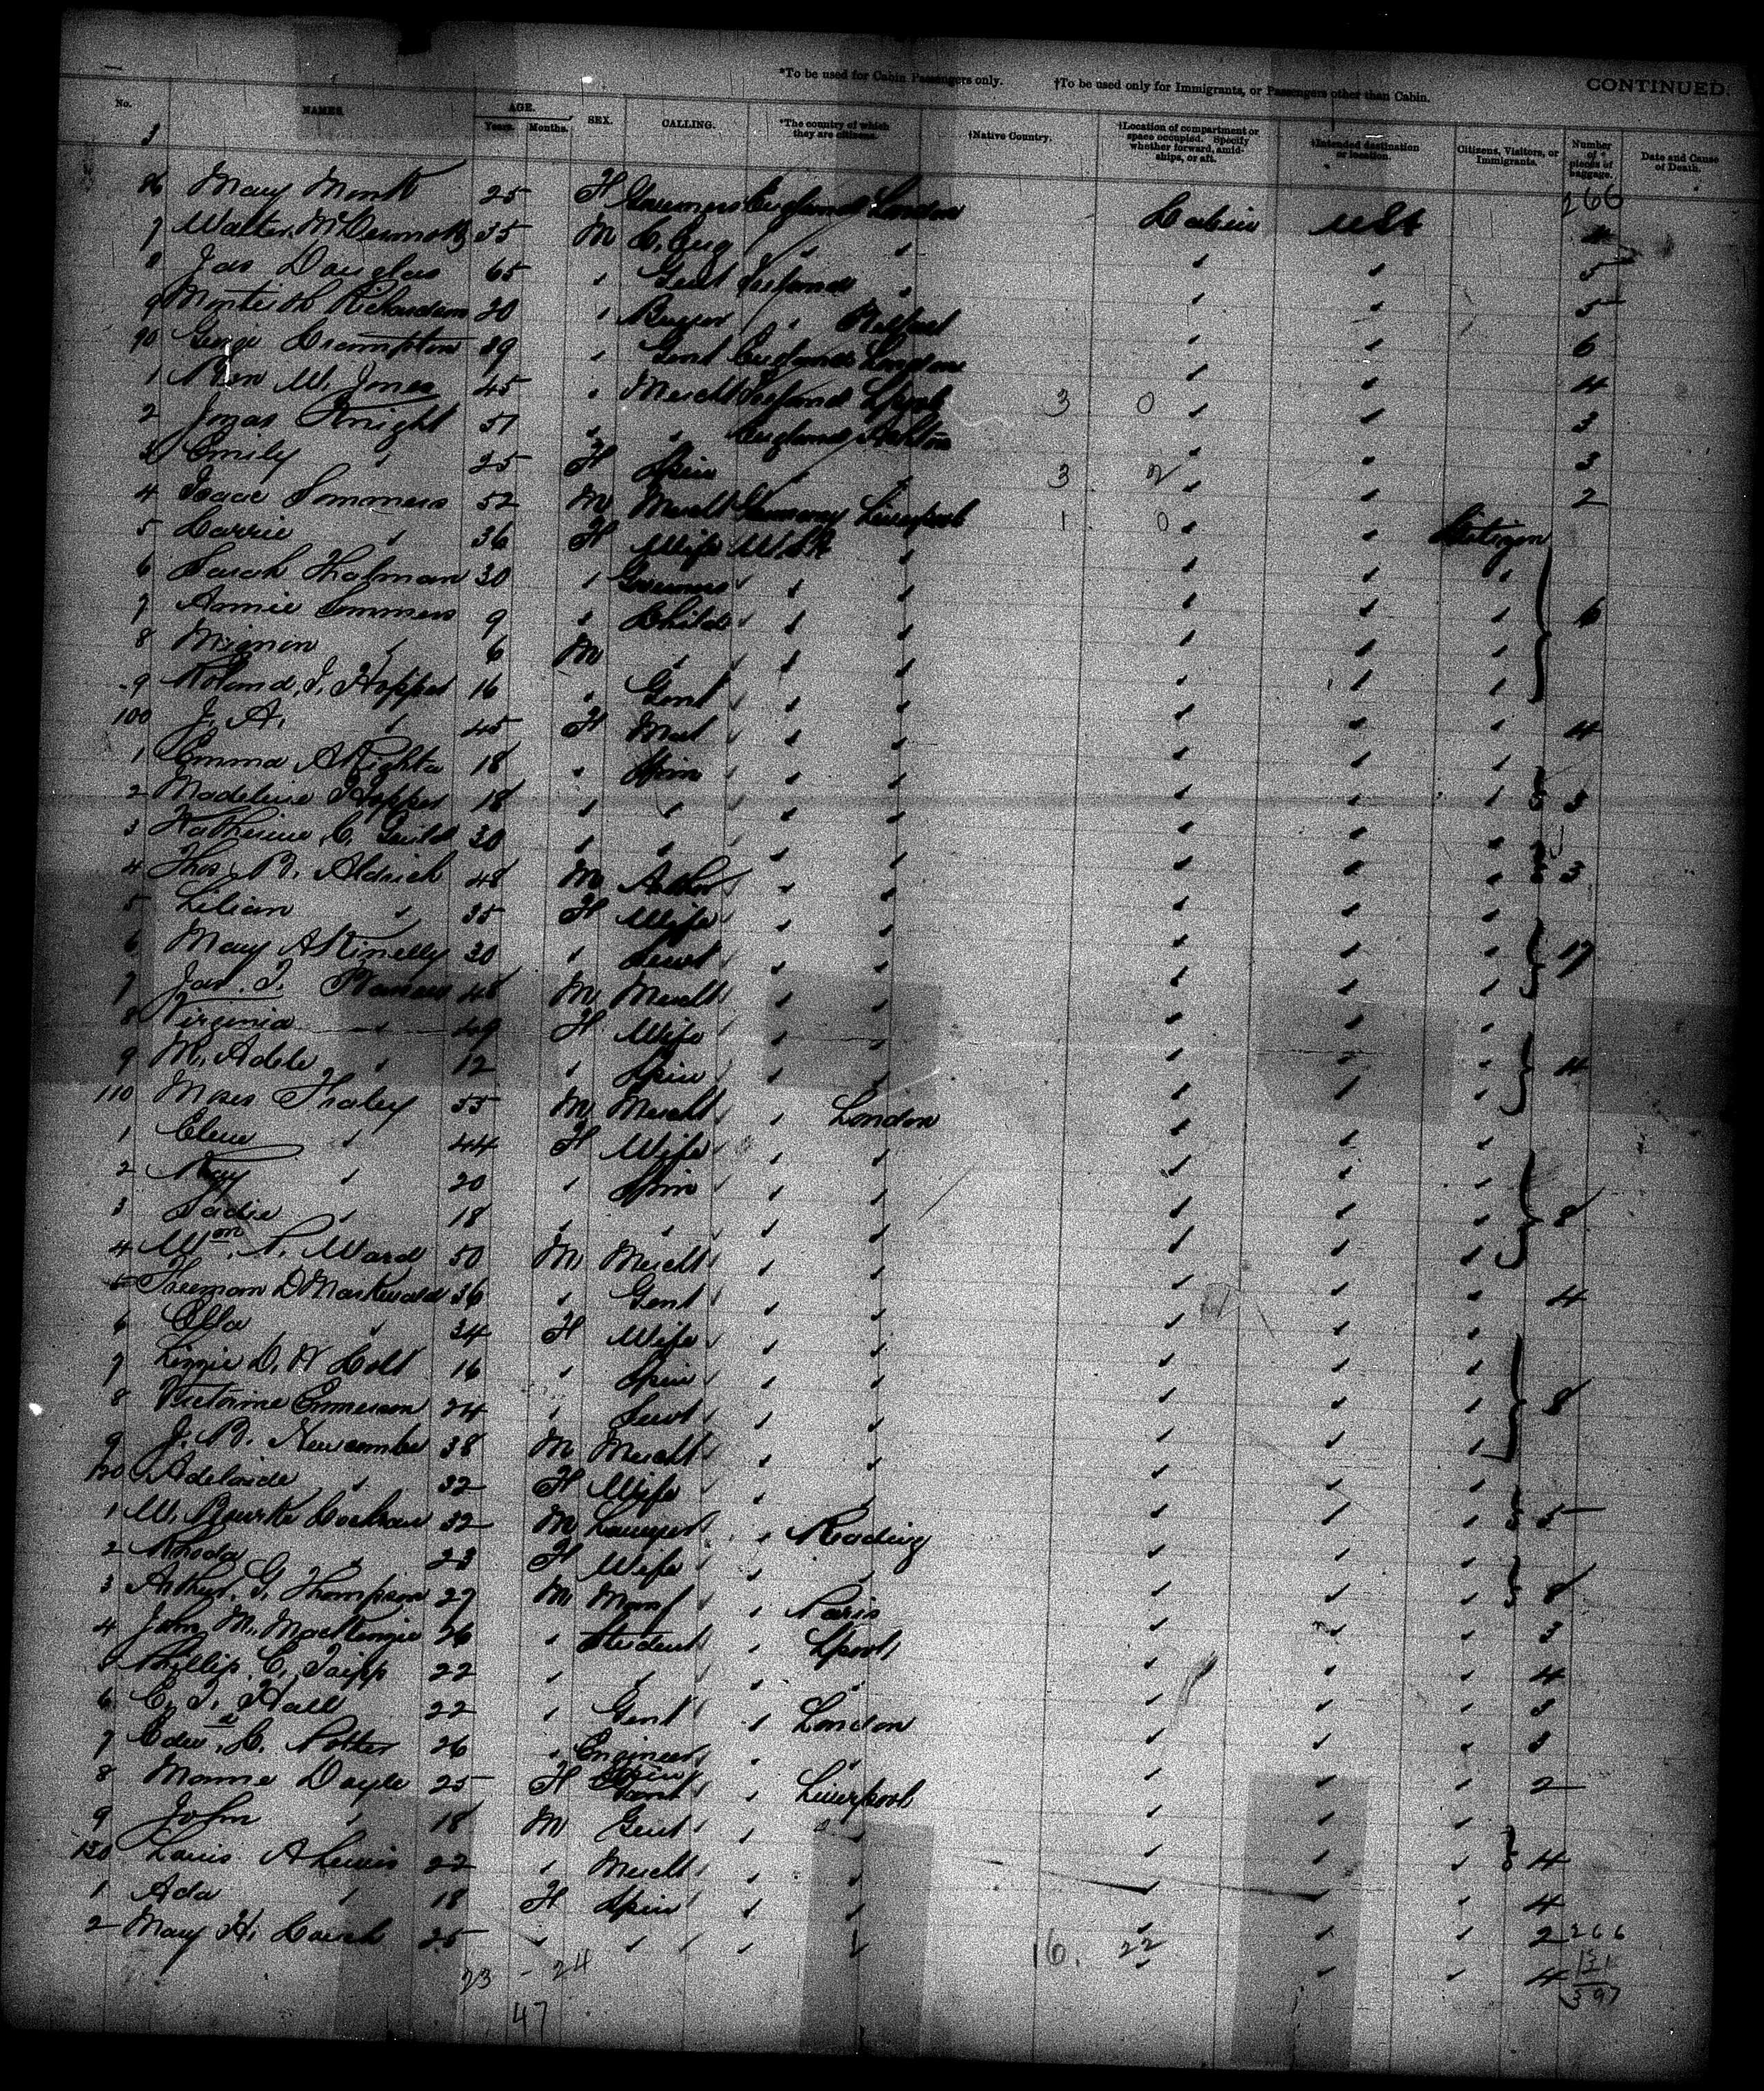 *To be used for Cabin Passengers only. †To be used only for Immigrants, or Passengers other than Cabin. CONTINUED.
No. NAMES. AGE. Years. Months. SEX. CALLING. *The country of which they are citizens. †Native Country. †Location of compartment or space occupied. Specify whether forward, amidships, or aft. †Intended destination or location. Citizens, Visitors, or Immigrants. Number of pieces of baggage. Date and Cause of Death.
266
86 Mary Monk 25 F Governess England London Cabin USA 4
7 Walter McDermott 35 M C. Eng " " " " 5
8 Jas Douglas 65 " Gent Ireland " " " 5
9 Monteith Richardson 30 " Buyer " Belfast " " 6
90 George Crompton 39 " Gent England London " " 4
1 Ben W. Jones 45 " Mercht Ireland Lpool 3 0 " " 3
2 Jonas Knight 51 " " England Ashton " " 3
3 Emily " 25 F Spin " " 3 2 " " 2
4 Isaac Sommers 52 M Mercht Germany Liverpool 1 0 " " Citizen
5 Carrie " 36 F Wife USA " " " "
6 Sarah Thalman 30 " Governess " " " " " 6
7 Annie Sommers 9 " Child " " " " "
8 Mignon " 6 M " " " " " "
9 Roland I. Hopper 16 " Gent " " " " " 4
100 J. A. " 45 F Mat " " " " "
1 Emma A Righta 18 " Spin " " " " " 3
2 Madeline Hopper 18 " " " " " " "
3 Katherine C. Guild 30 " " " " " " " 3
4 Thos. B. Aldrich 48 M Author " " " " "
5 Lilian " 35 F Wife " " " " " 17
6 Mary A Kinelly 30 " Servt " " " " "
7 Jas. T. 48 M Mercht " " " " "
8 Virginia " 49 F Wife " " " " " 4
9 M. Adele " 12 " Spin " " " " "
110 Moses Fraley 55 M Mercht " London " " "
1 Clene " 44 F Wife " " " " "
2 Ray " 20 " Spin " " " " " 8
3 Sadie " 18 " " " " " " "
4 Wm. R. Ward 50 M Mercht " " " " " 4
5 Freeman D Markwald 36 " Gent " " " " "
6 Ella " 34 F Wife " " " " "
7 Lizzie D. W Colt 16 " Spin " " " " " 8
8 Victorine Emmerson 24 " Servt " " " " "
9 J. B. Newcombe 38 M Mercht " " " " "
120 Adelaide " 32 F Wife " " " " " 5
1 W. Bourke Cockran 32 M Lawyer " Reading " " "
2 Rhoda " 23 F Wife " " " " " 8
3 Arthur G. Thompson 27 M Manf " Paris " " " 3
4 John M. MacKenzie 26 " Student " Lpool " " " 4
5 Phillip C. 22 " " " " " " " 3
6 C. T. Hall 22 " Gent " London " " " 3
7 Edwd. C. Potter 26 " Engineer " " " " " 2
8 Mamie Doyle 25 F Spin " Liverpool " " "
9 John " 18 M Gent " " " " " 4
130 Louis A Lewis 22 " Mercht " " " " " 4
1 Ada " 18 F Spin " " " " " 2
2 Mary H. 25 " " " " " " " 4
23 - 24
47
16. 22
266
131
397